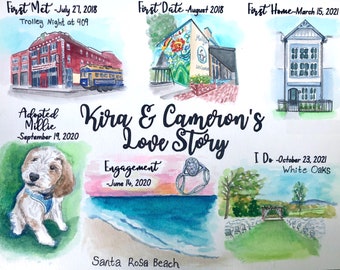 First Met -July 27, 2018
Trolley Night at 409
First Date -August 2018
First Home -March 15, 2021
Kira & Cameron's
Love Story
Adopted
Millie
-September 19, 2020
Engagement
-June 14, 2020
I Do -October 23, 2021
White Oaks
Santa Rosa Beach